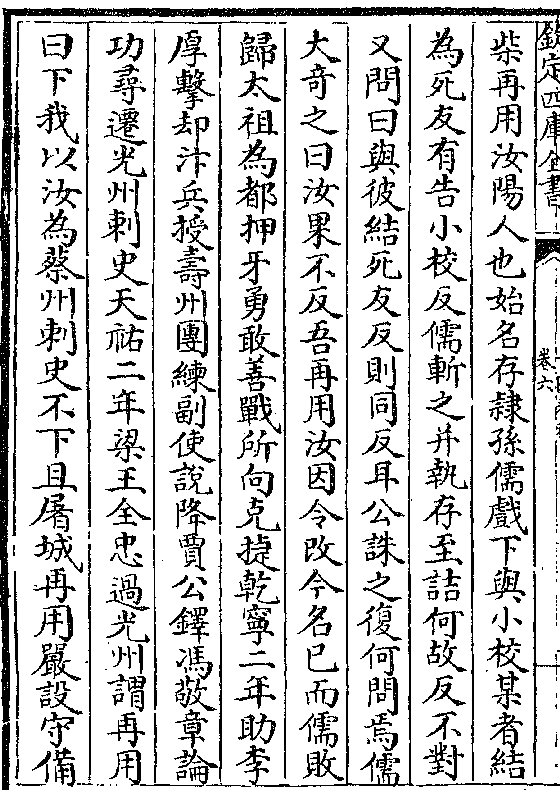 欽定四庫全書
卷六
柴再用汝陽人也始名存隷孫儒戲下與小校某者結
為死友有告小校反儒斬之并執存至詰何故反不對
又問曰與彼結死友反則同反耳公誅之復何問焉儒
大奇之曰汝果不反吾再用汝因令改今名已而儒敗
歸太祖為都押牙勇敢善戰所向克捷乾寧二年助李
厚擊却汴兵授壽州團練副使說降賈公鐸馮敬章論
功尋遷光州刺史天祐二年梁王全忠過光州謂再用
曰下我以汝為蔡州刺史不下且屠城再用嚴設守備